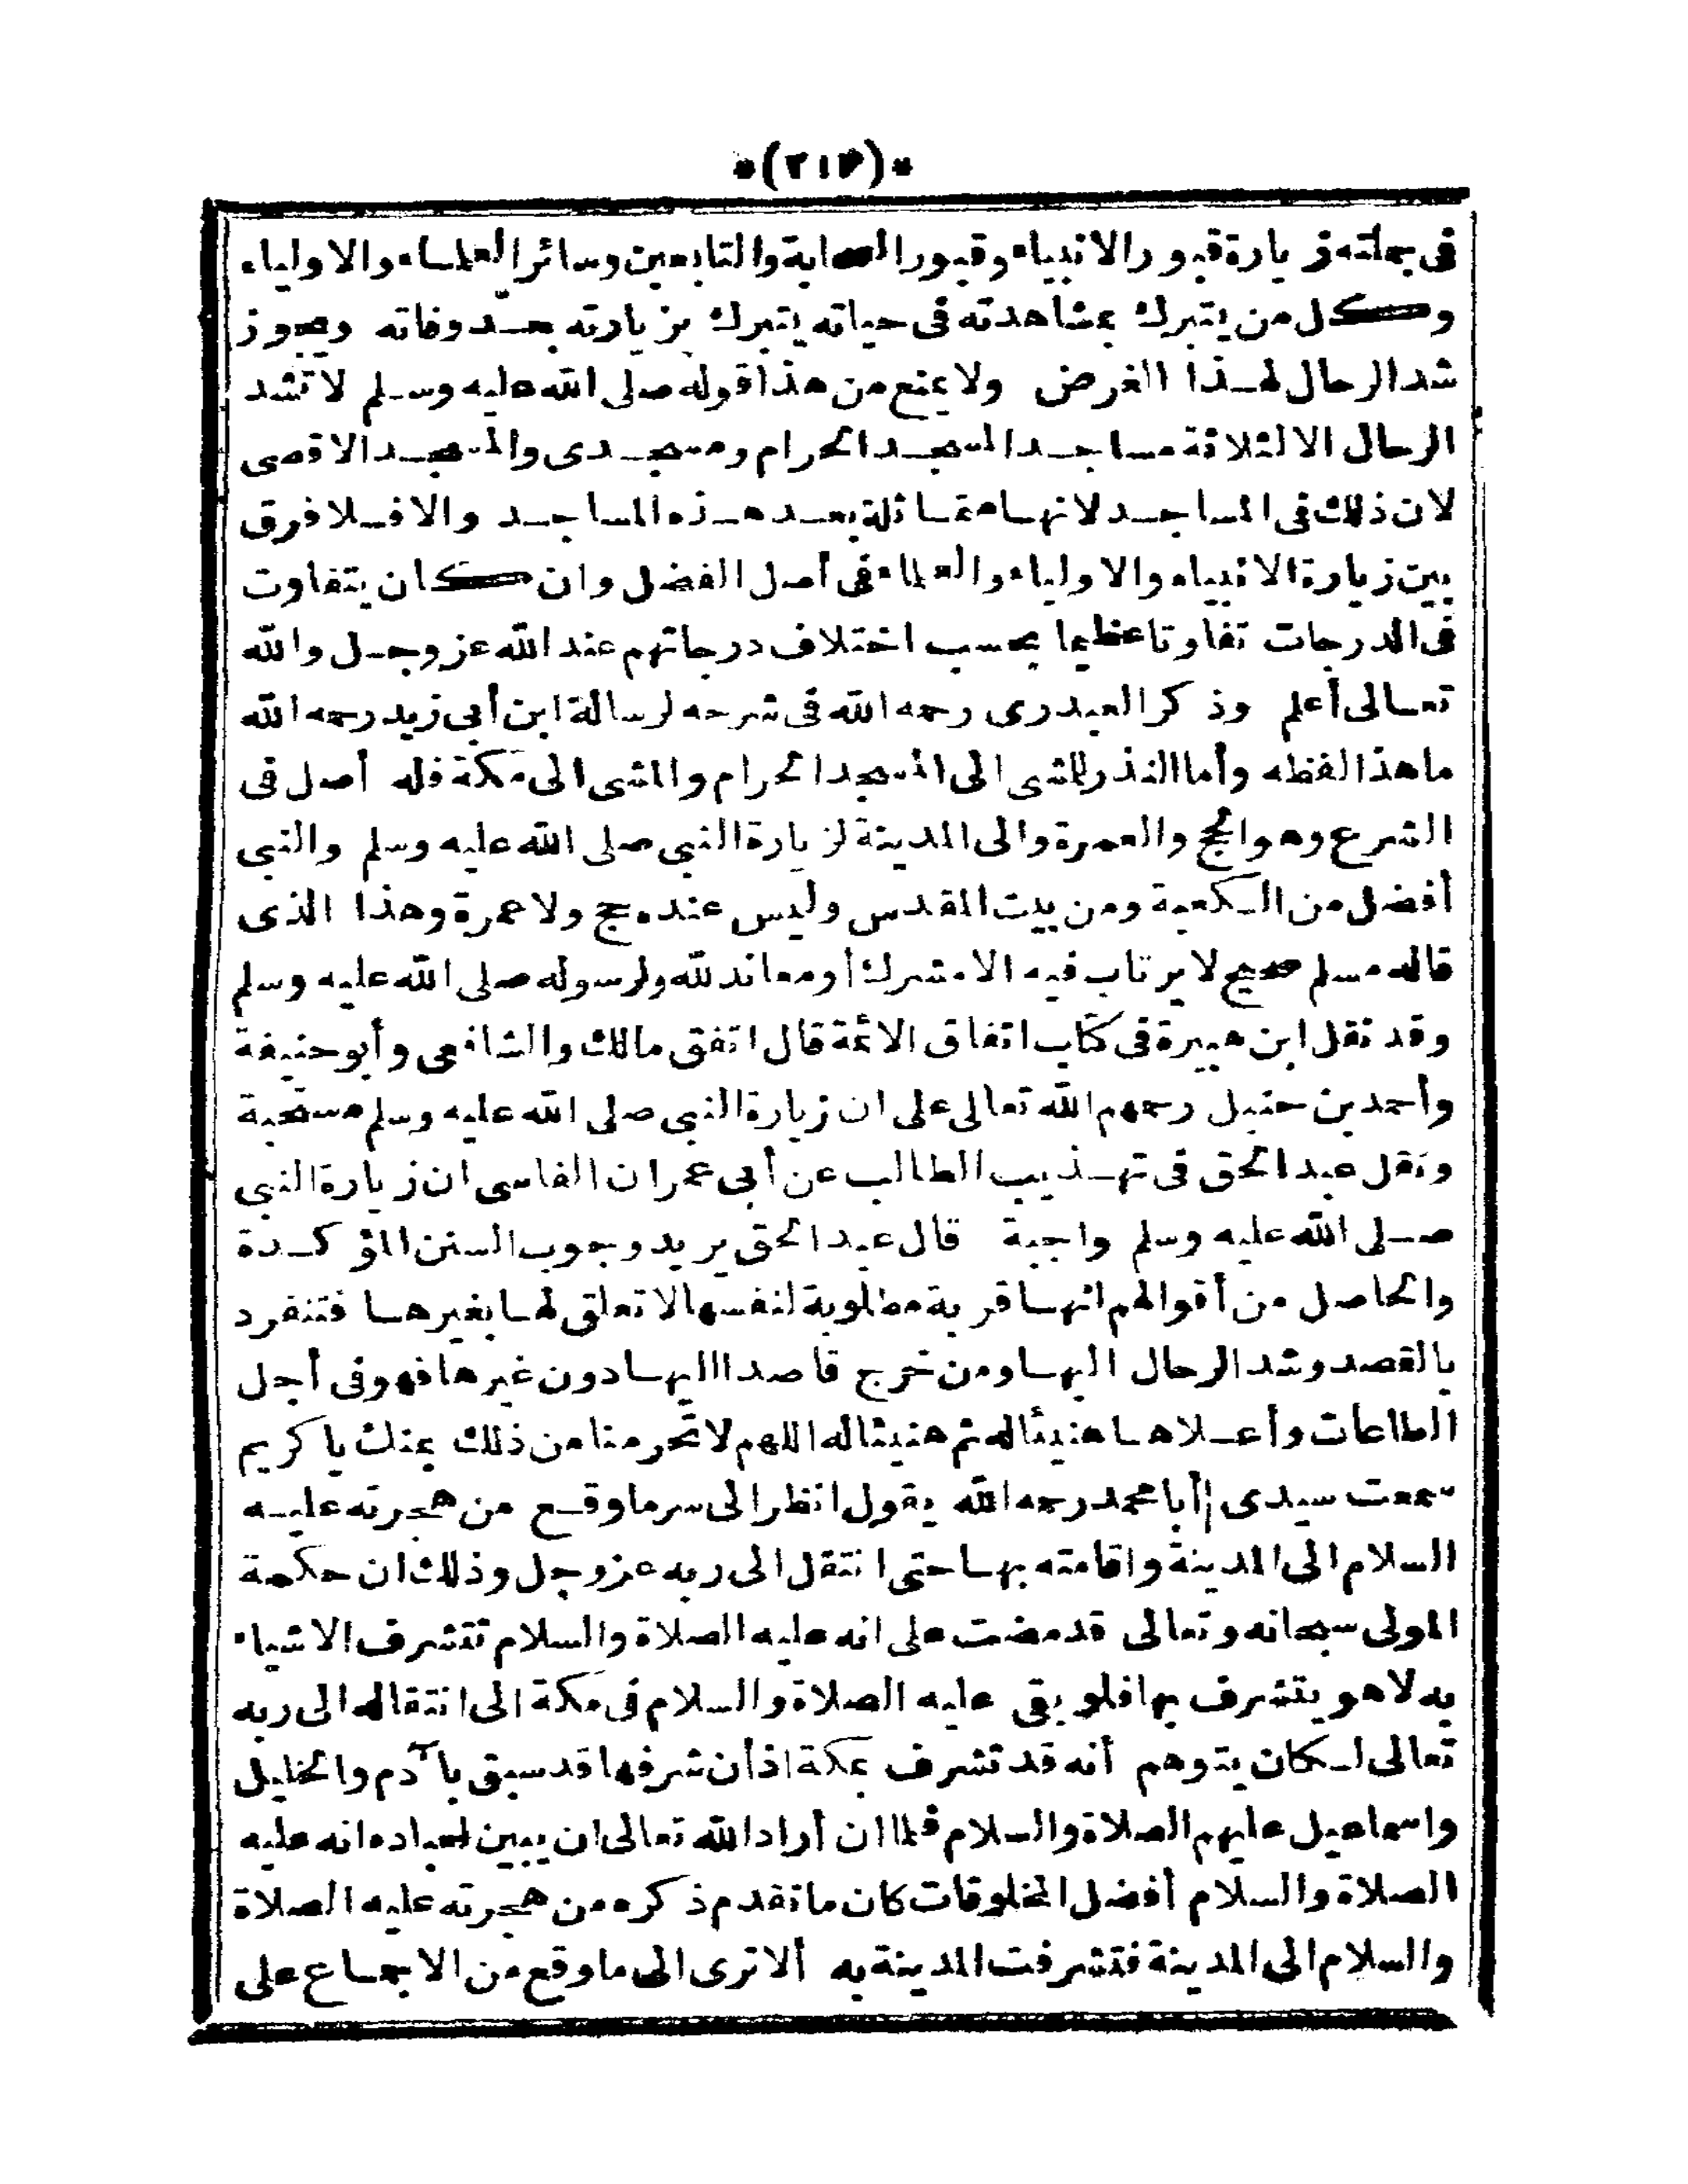 *(٢١٧)*
فى جملته زيارة قبور الانبياء وقبور الصحابة والتابعين وسائر العلماء والاولياء
وكل من يتبرك بمشاهدته فى حياته يتبرك بزيارته بعد وفاته ويجوز
شد الرحال لهذا الغرض ولا يمنع من هذا قوله صلى الله عليه وسلم لا تشد
الرحال الا لثلاثة مساجد المسجد الحرام ومسجدى والمسجد الاقصى
لان ذلك فى المساجد لانها متماثلة بعد هذه المساجد والا فلا فرق
بين زيارة الانبياء والاولياء والعلماء فى أصل الفضل وان كان يتفاوت
فى الدرجات تفاوتا عظيما بحسب اختلاف درجاتهم عند الله عز وجل والله
تعالى أعلم وذكر العبدرى رحمه الله فى شرحه لرسالة ابن أبى زيد رحمه الله
ما هذا لفظه وأما النذر للمشى الى المسجد الحرام والمشى الى مكة فله أصل فى
الشرع وهو الحج والعمرة والى المدينة لزيارة النبى صلى الله عليه وسلم والنبى
أفضل من الكعبة ومن بيت المقدس وليس عنده حج ولا عمرة وهذا الذى
قاله مسلم صحيح لا يرتاب فيه الا مشرك أو معاند لله ولرسوله صلى الله عليه وسلم
وقد نقل ابن هبيرة فى كتاب اتفاق الائمة قال اتفق مالك والشافعى وأبو حنيفة
وأحمد بن حنبل رحمهم الله تعالى على ان زيارة النبى صلى الله عليه وسلم مستحبة
ونقل عبد الحق فى تهذيب الطالب عن أبى عمران الفاسى ان زيارة النبى
صلى الله عليه وسلم واجبة قال عبد الحق يريد وجوب السنن المؤكدة
والحاصل من أقوالهم انها قربة مطلوبة لنفسها لا تعلق لها بغيرها فتنفرد
بالقصد وشد الرحال اليها ومن خرج قاصدا اليها دون غيرها فهو فى أجل
الطاعات وأعلاها هنيئا له ثم هنيئا له اللهم لا تحرمنا من ذلك بمنك يا كريم
سمعت سيدى أبا محمد رحمه الله يقول انظر الى سر ما وقع من هجرته عليه
السلام الى المدينة واقامته بها حتى انتقل الى ربه عز وجل وذلك ان حكمة
المولى سبحانه وتعالى قد مضت على انه عليه الصلاة والسلام تتشرف الاشياء
به لا هو يتشرف بها فلو بقى عليه الصلاة والسلام فى مكة الى انتقاله الى ربه
تعالى لكان يتوهم أنه قد تشرف بمكة اذ أن شرفها قد سبق بآدم والخليل
واسماعيل عليهم الصلاة والسلام فلما ان أراد الله تعالى ان يبين لعباده انه عليه
الصلاة والسلام أفضل المخلوقات كان ما تقدم ذكره من هجرته عليه الصلاة
والسلام الى المدينة فتشرفت المدينة به ألا ترى الى ما وقع من الاجماع على